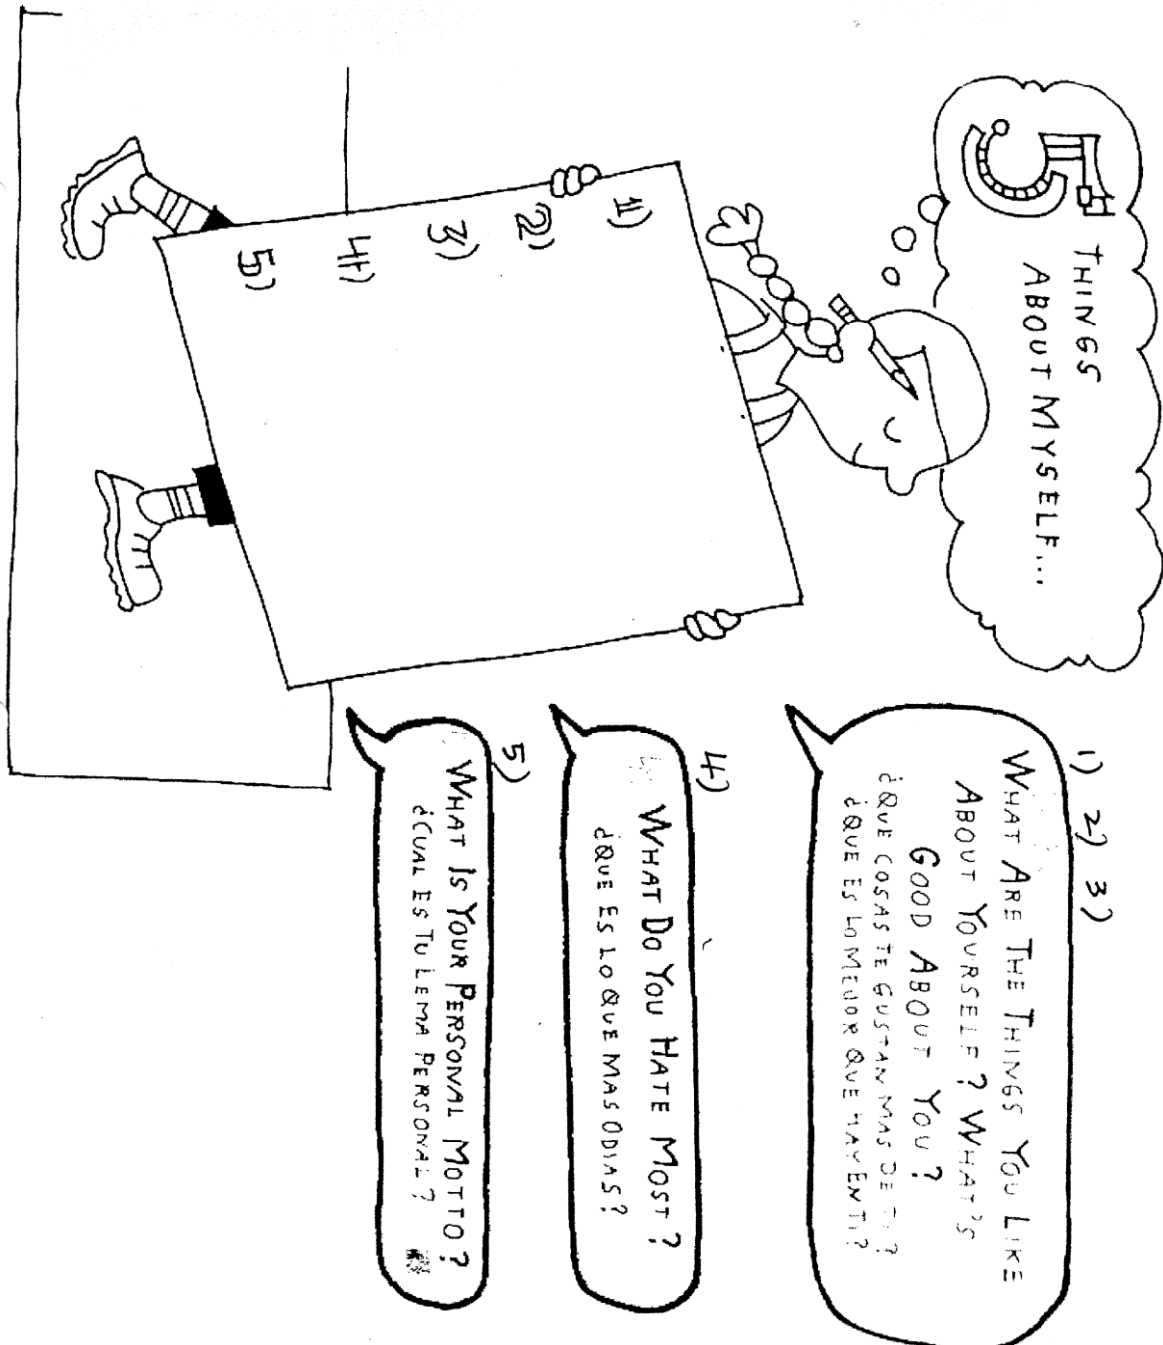 5
THINGS
ABOUT MYSELF...
1)
2)
3)
4)
5)
1) 2) 3)
WHAT ARE THE THINGS YOU LIKE
ABOUT YOURSELF? WHAT'S
GOOD ABOUT YOU?
¿QUE COSAS TE GUSTAN MAS DE TI?
¿QUE ES LO MEJOR QUE HAY EN TI?
4)
WHAT DO YOU HATE MOST?
¿QUE ES LO QUE MAS ODIAS?
5)
WHAT IS YOUR PERSONAL MOTTO?
¿CUAL ES TU LEMA PERSONAL?